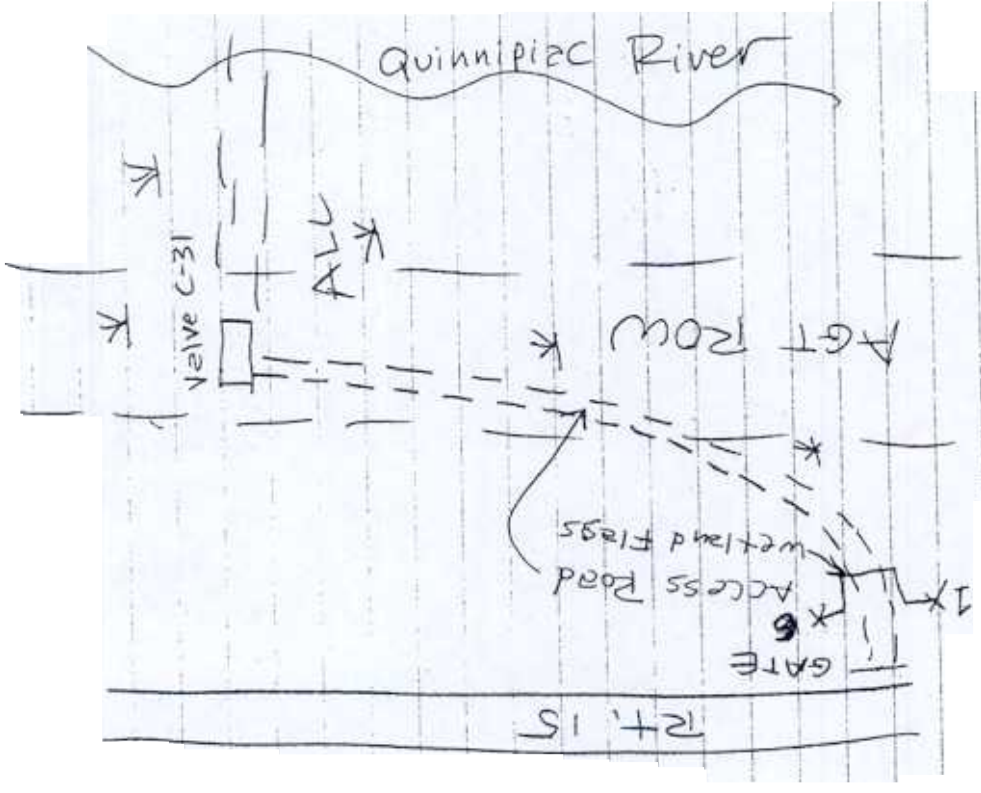 Quinnipiac River
Valve C-31
ALL
AGT ROW
Wetland Flags
Access Road
1
GATE
Rt. 15